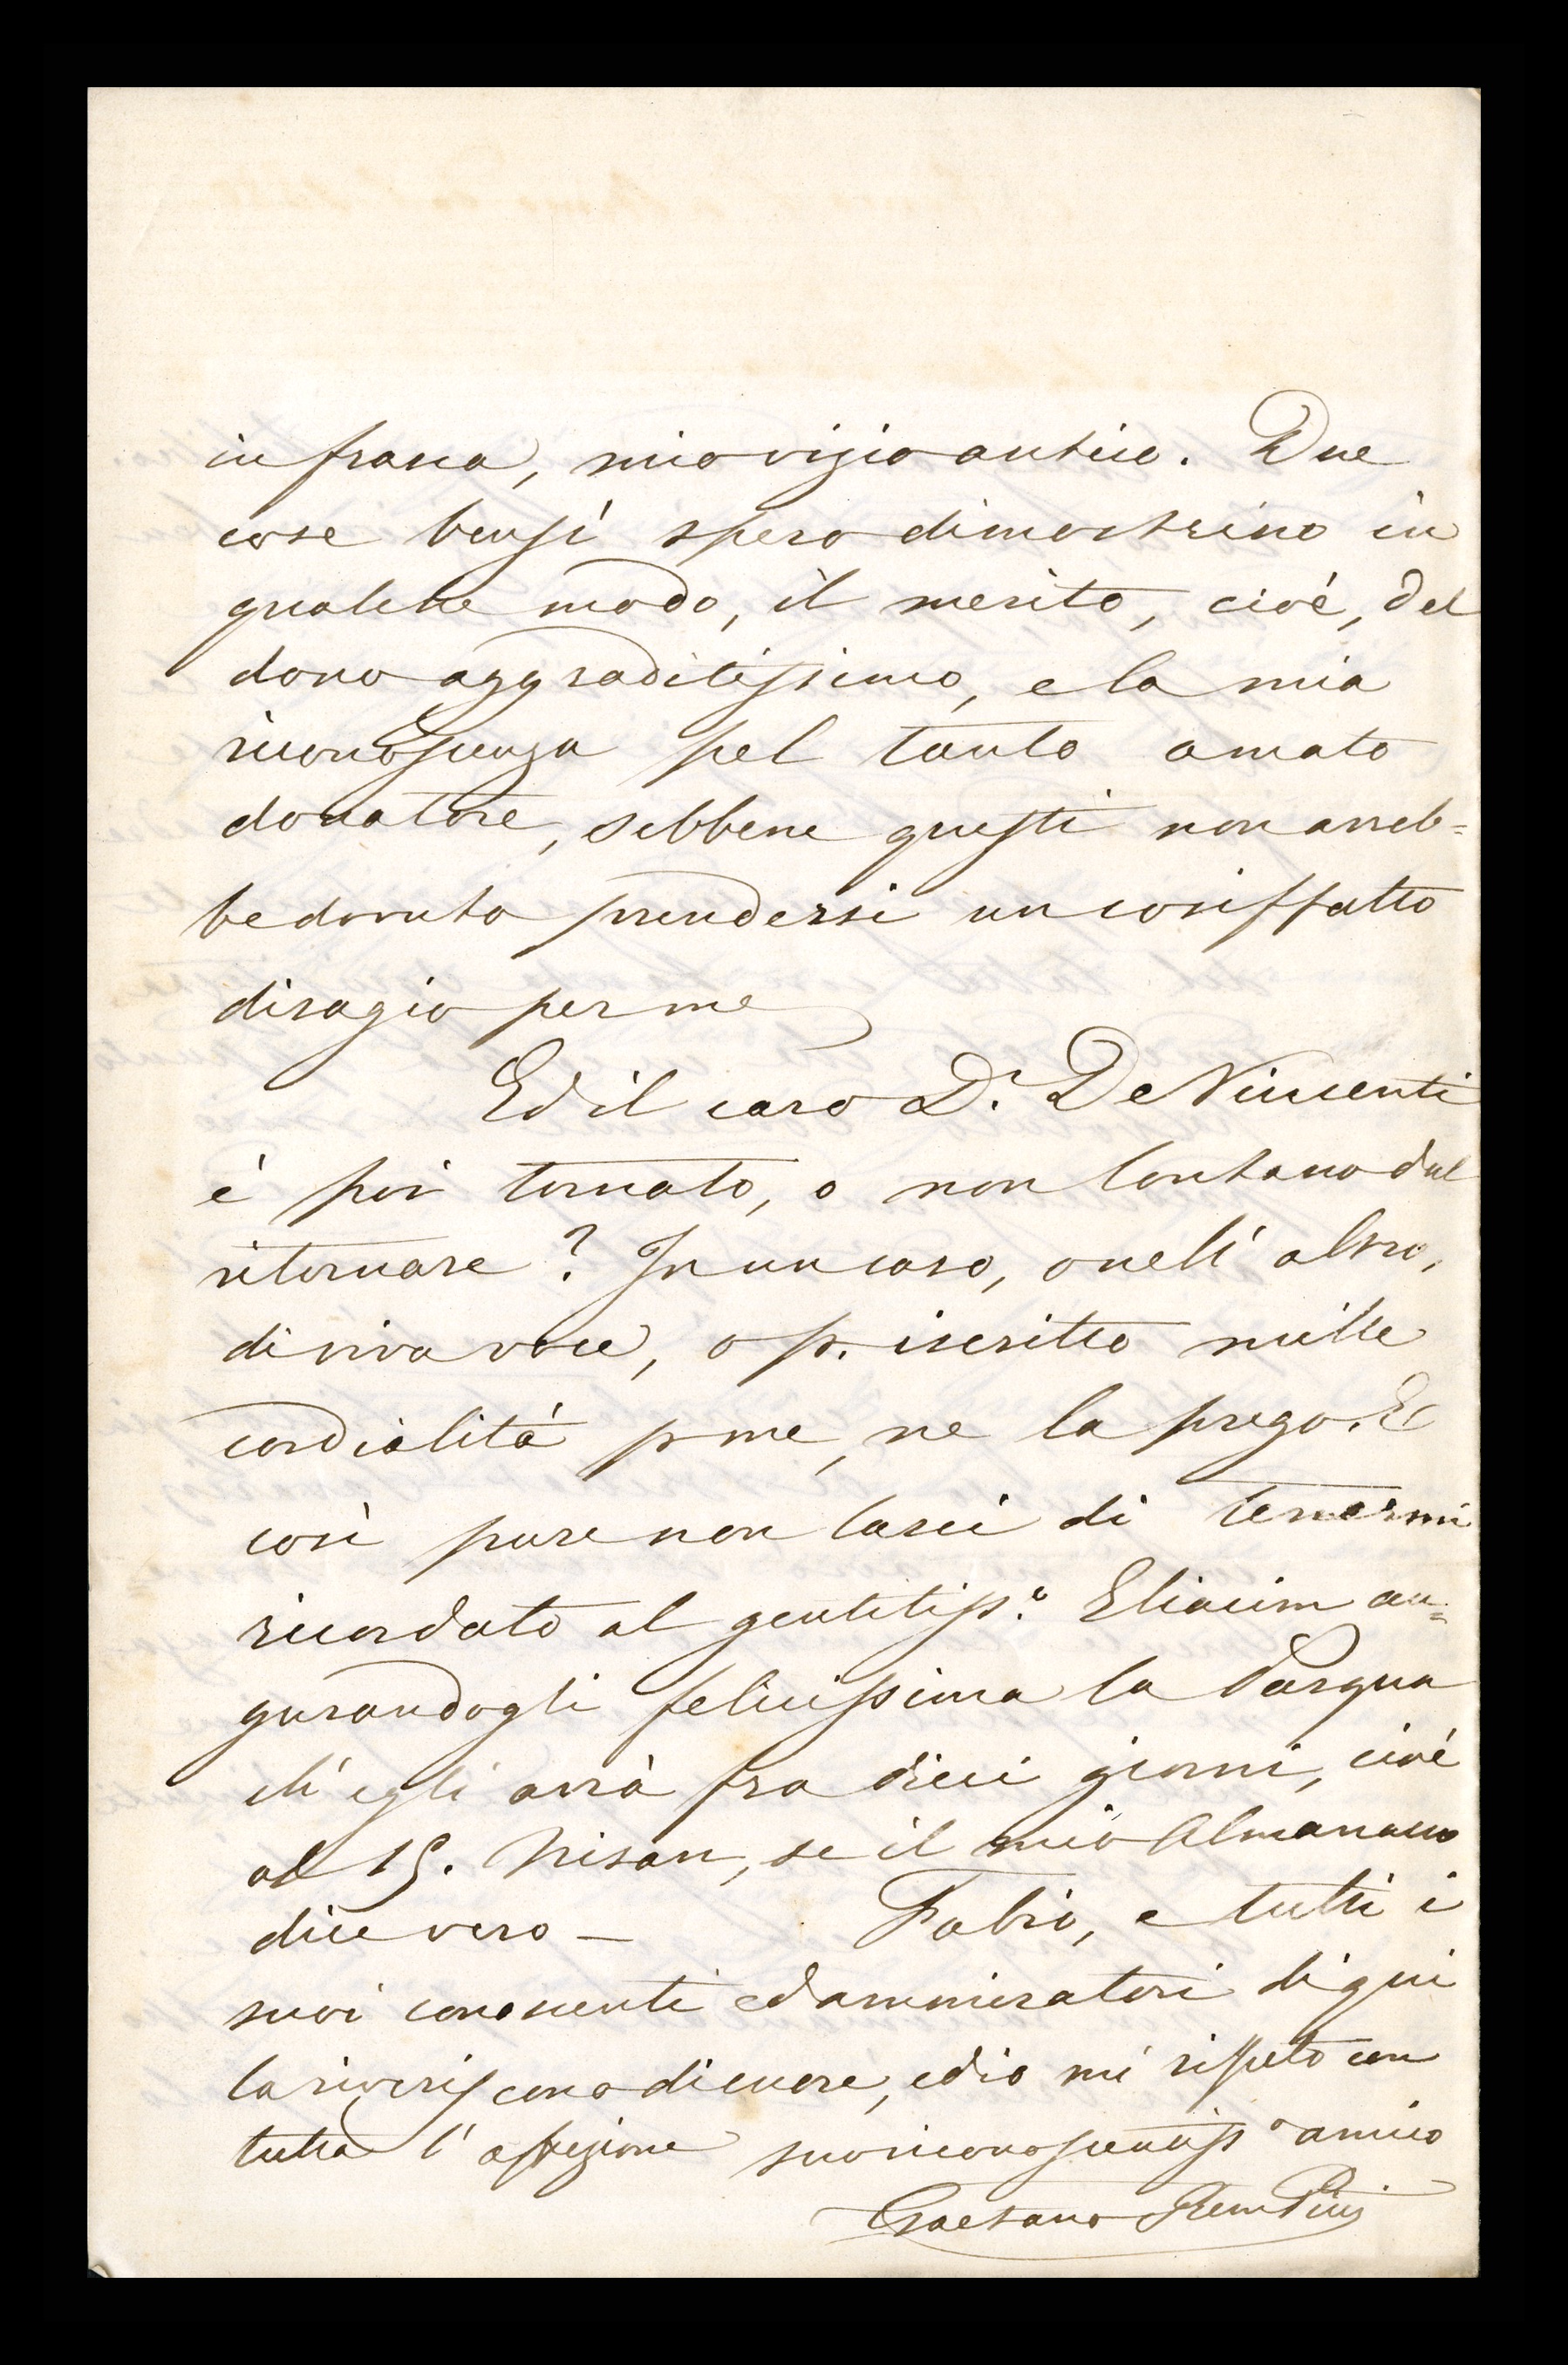 in frasca, mio vizio antico. Due
cose bensì spero dimostrino in
qualche modo, il merito, cioè, del
dono aggraditissimo, e la mia
riconoscenza pel tanto amato
donatore, sebbene questi non avreb=
be dovuto prendersi un cosiffatto
disagio per me
Ed il caro D. De Vincenti
è poi tornato, o non lontano dal
ritornare? In un caso, o nell' altro,
di viva voce, o p. iscritto mille
cordialità p me, ne la prego. E
così pure non lasci di tenermi
ricordato al gentiliss.º Eliacim au=
gurandogli felicissima la Pasqua
ch' egli avrà fra dieci giorni, cioè
al 15. Nisan, se il mio Almanacco
dice vero — Fabri, e tutti i
suoi conoscenti ed ammiratori di qui
la riveriscono di cuore, ed io mi ripeto con
tutta l' affezione suo riconoscentiss º amico
Gaetano